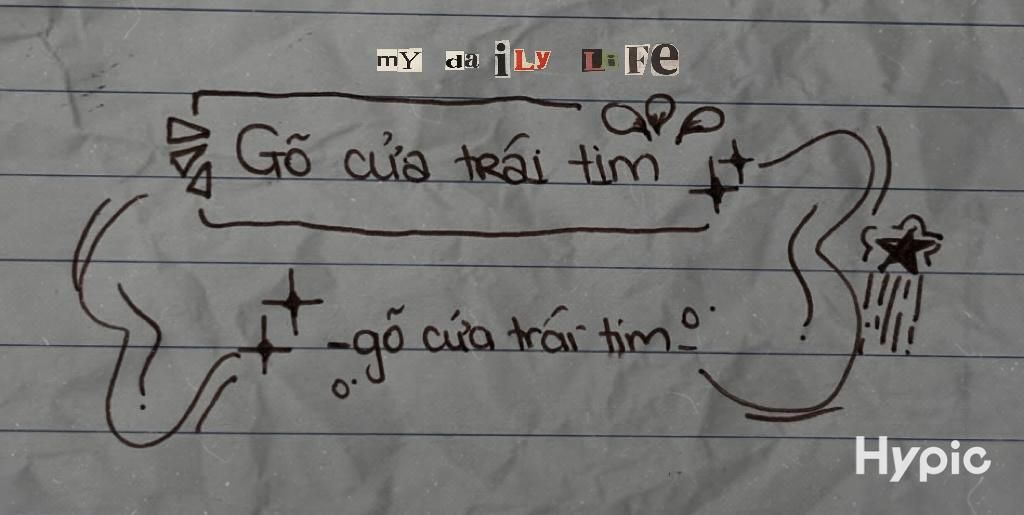 my daily Life
Gõ cửa trái tim
-gõ cửa trái tim-
Hypic